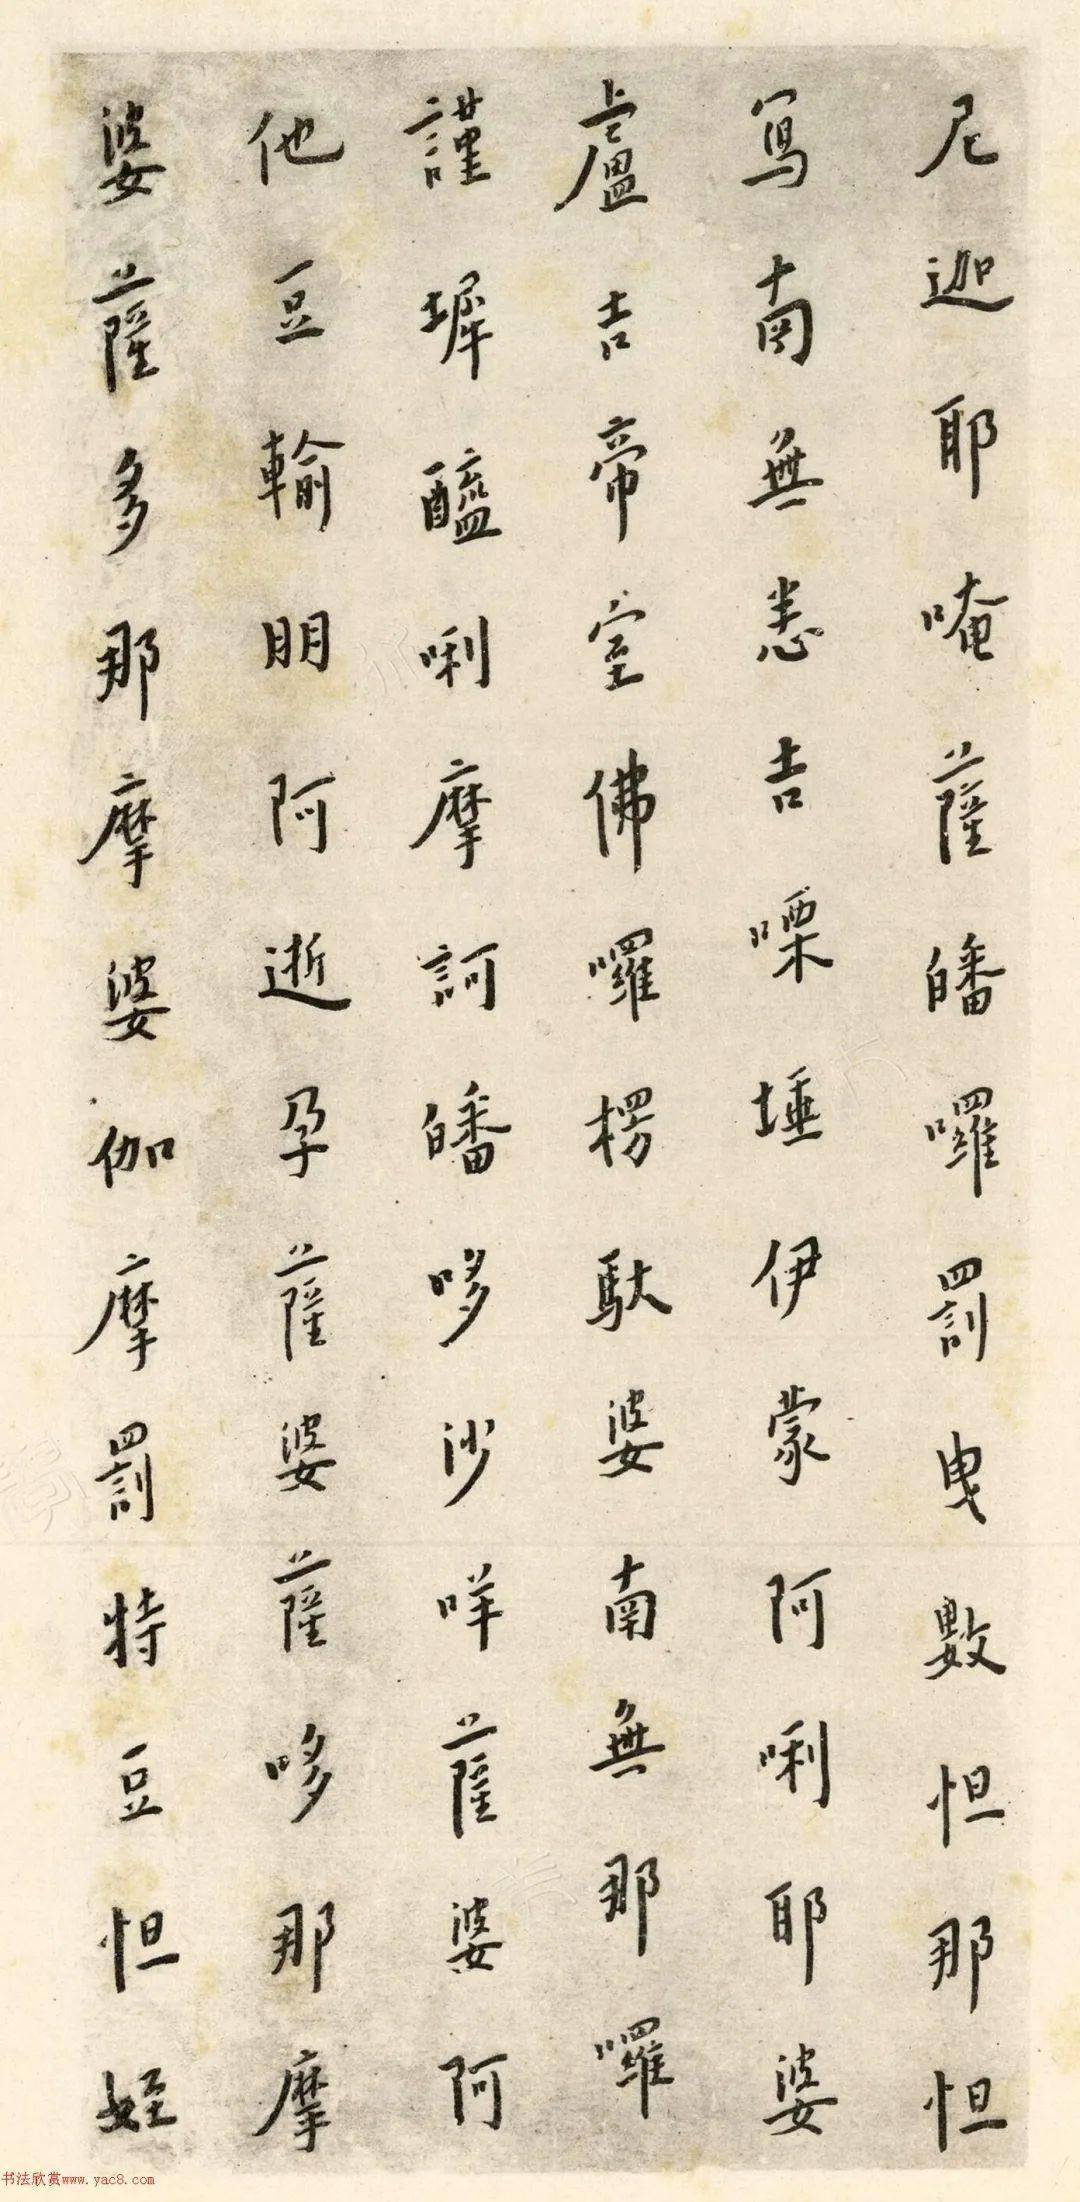 尼迦耶唵薩皤囉罰曳數怛那怛
寫南無悉吉㗚埵伊蒙阿唎耶婆
盧吉帝室佛囉楞馱婆南無那囉
謹墀醯唎摩訶皤哆沙咩薩婆阿
他豆輸朋阿逝孕薩婆薩哆那摩
婆薩多那摩婆伽摩罰特豆怛姪
书法欣赏www.yac8.com